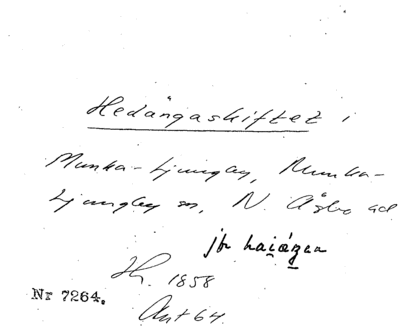 Hedängaskiftet i
Munka-Ljungby, Munka-
Ljungby sn, N. Åsbo hd
jfr
Sk. 1858
Ant 64.
Nr 7264.